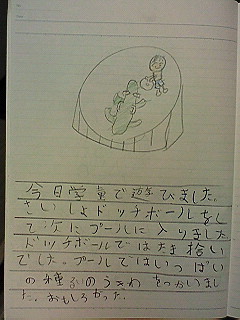 今日学童で遊びました。
さいしょドッチボールをし
て次にプールに入りました
ドッチボールではたま拾い
でした。プールではいっぱい
の種るいのうきわをつかいまし
た。おもしろかった。